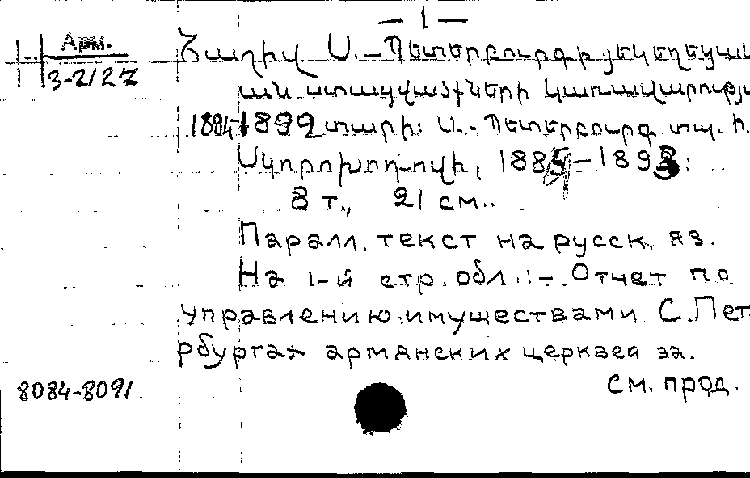 — 1 —
Арм.
3-2/227
Հաշիվ Ս. – Պետերբուրգի յեկեղեցա
կան ստացվածների կառավարությա
1884-1892 տարի: Ս. – Պետերբուրգ տպ. Ի.
Սկորոխոդովի, 1885-1893:
8 т., 21 см..
Паралл. текст на русск. яз.
На 1-й стр. обл.: – Отчет по
управлению имуществами С. Пет
рбургах армянских церквей за.
8084-8091
см. прод.